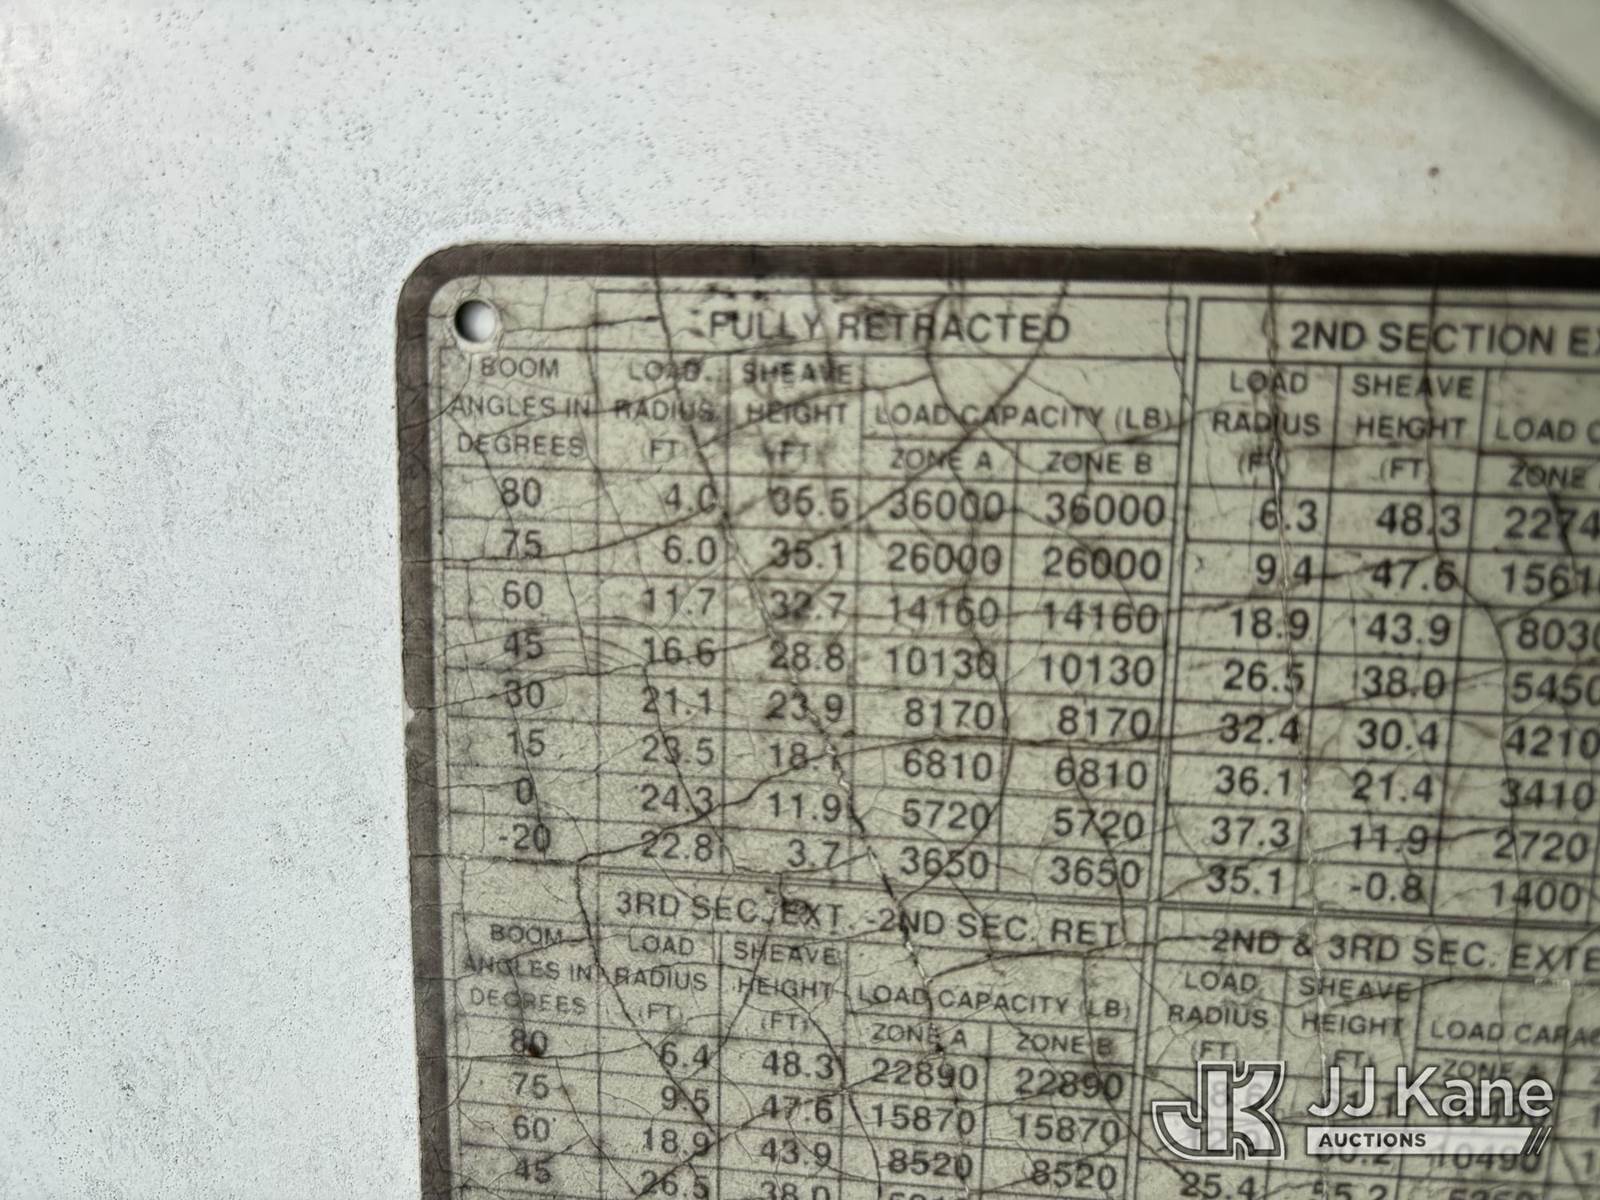 FULLY RETRACTED
BOOM ANGLES IN DEGREES LOAD RADIUS (FT) SHEAVE HEIGHT (FT) LOAD CAPACITY (LB)
ZONE A ZONE B
80 4.0 35.5 36000 36000
75 6.0 35.1 26000 26000
60 11.7 32.7 14160 14160
45 16.6 28.8 10130 10130
30 21.1 23.9 8170 8170
15 23.5 18.1 6810 6810
0 24.3 11.9 5720 5720
-20 22.8 3.7 3650 3650
2ND SECTION
LOAD RADIUS (FT) SHEAVE HEIGHT (FT) LOAD
ZONE
6.3 48.3 2274
9.4 47.6 1561
18.9 43.9 803
26.5 38.0 5450
32.4 30.4 4210
36.1 21.4 3410
37.3 11.9 2720
35.1 -0.8 1400
3RD SEC. EXT. -2ND SEC. RET
BOOM ANGLES IN DEGREES LOAD RADIUS (FT) SHEAVE HEIGHT (FT) LOAD CAPACITY (LB)
ZONE A ZONE B
80 6.4 48.3 22890 22890
75 9.5 47.6 15870 15870
60 18.9 43.9 8520 8520
45 26.5 38.0
2ND & 3RD SEC. EXTE
LOAD RADIUS (FT) SHEAVE HEIGHT (FT) LOAD CAPAC
ZONE A
10490
25.4 55.2
JJ Kane
AUCTIONS